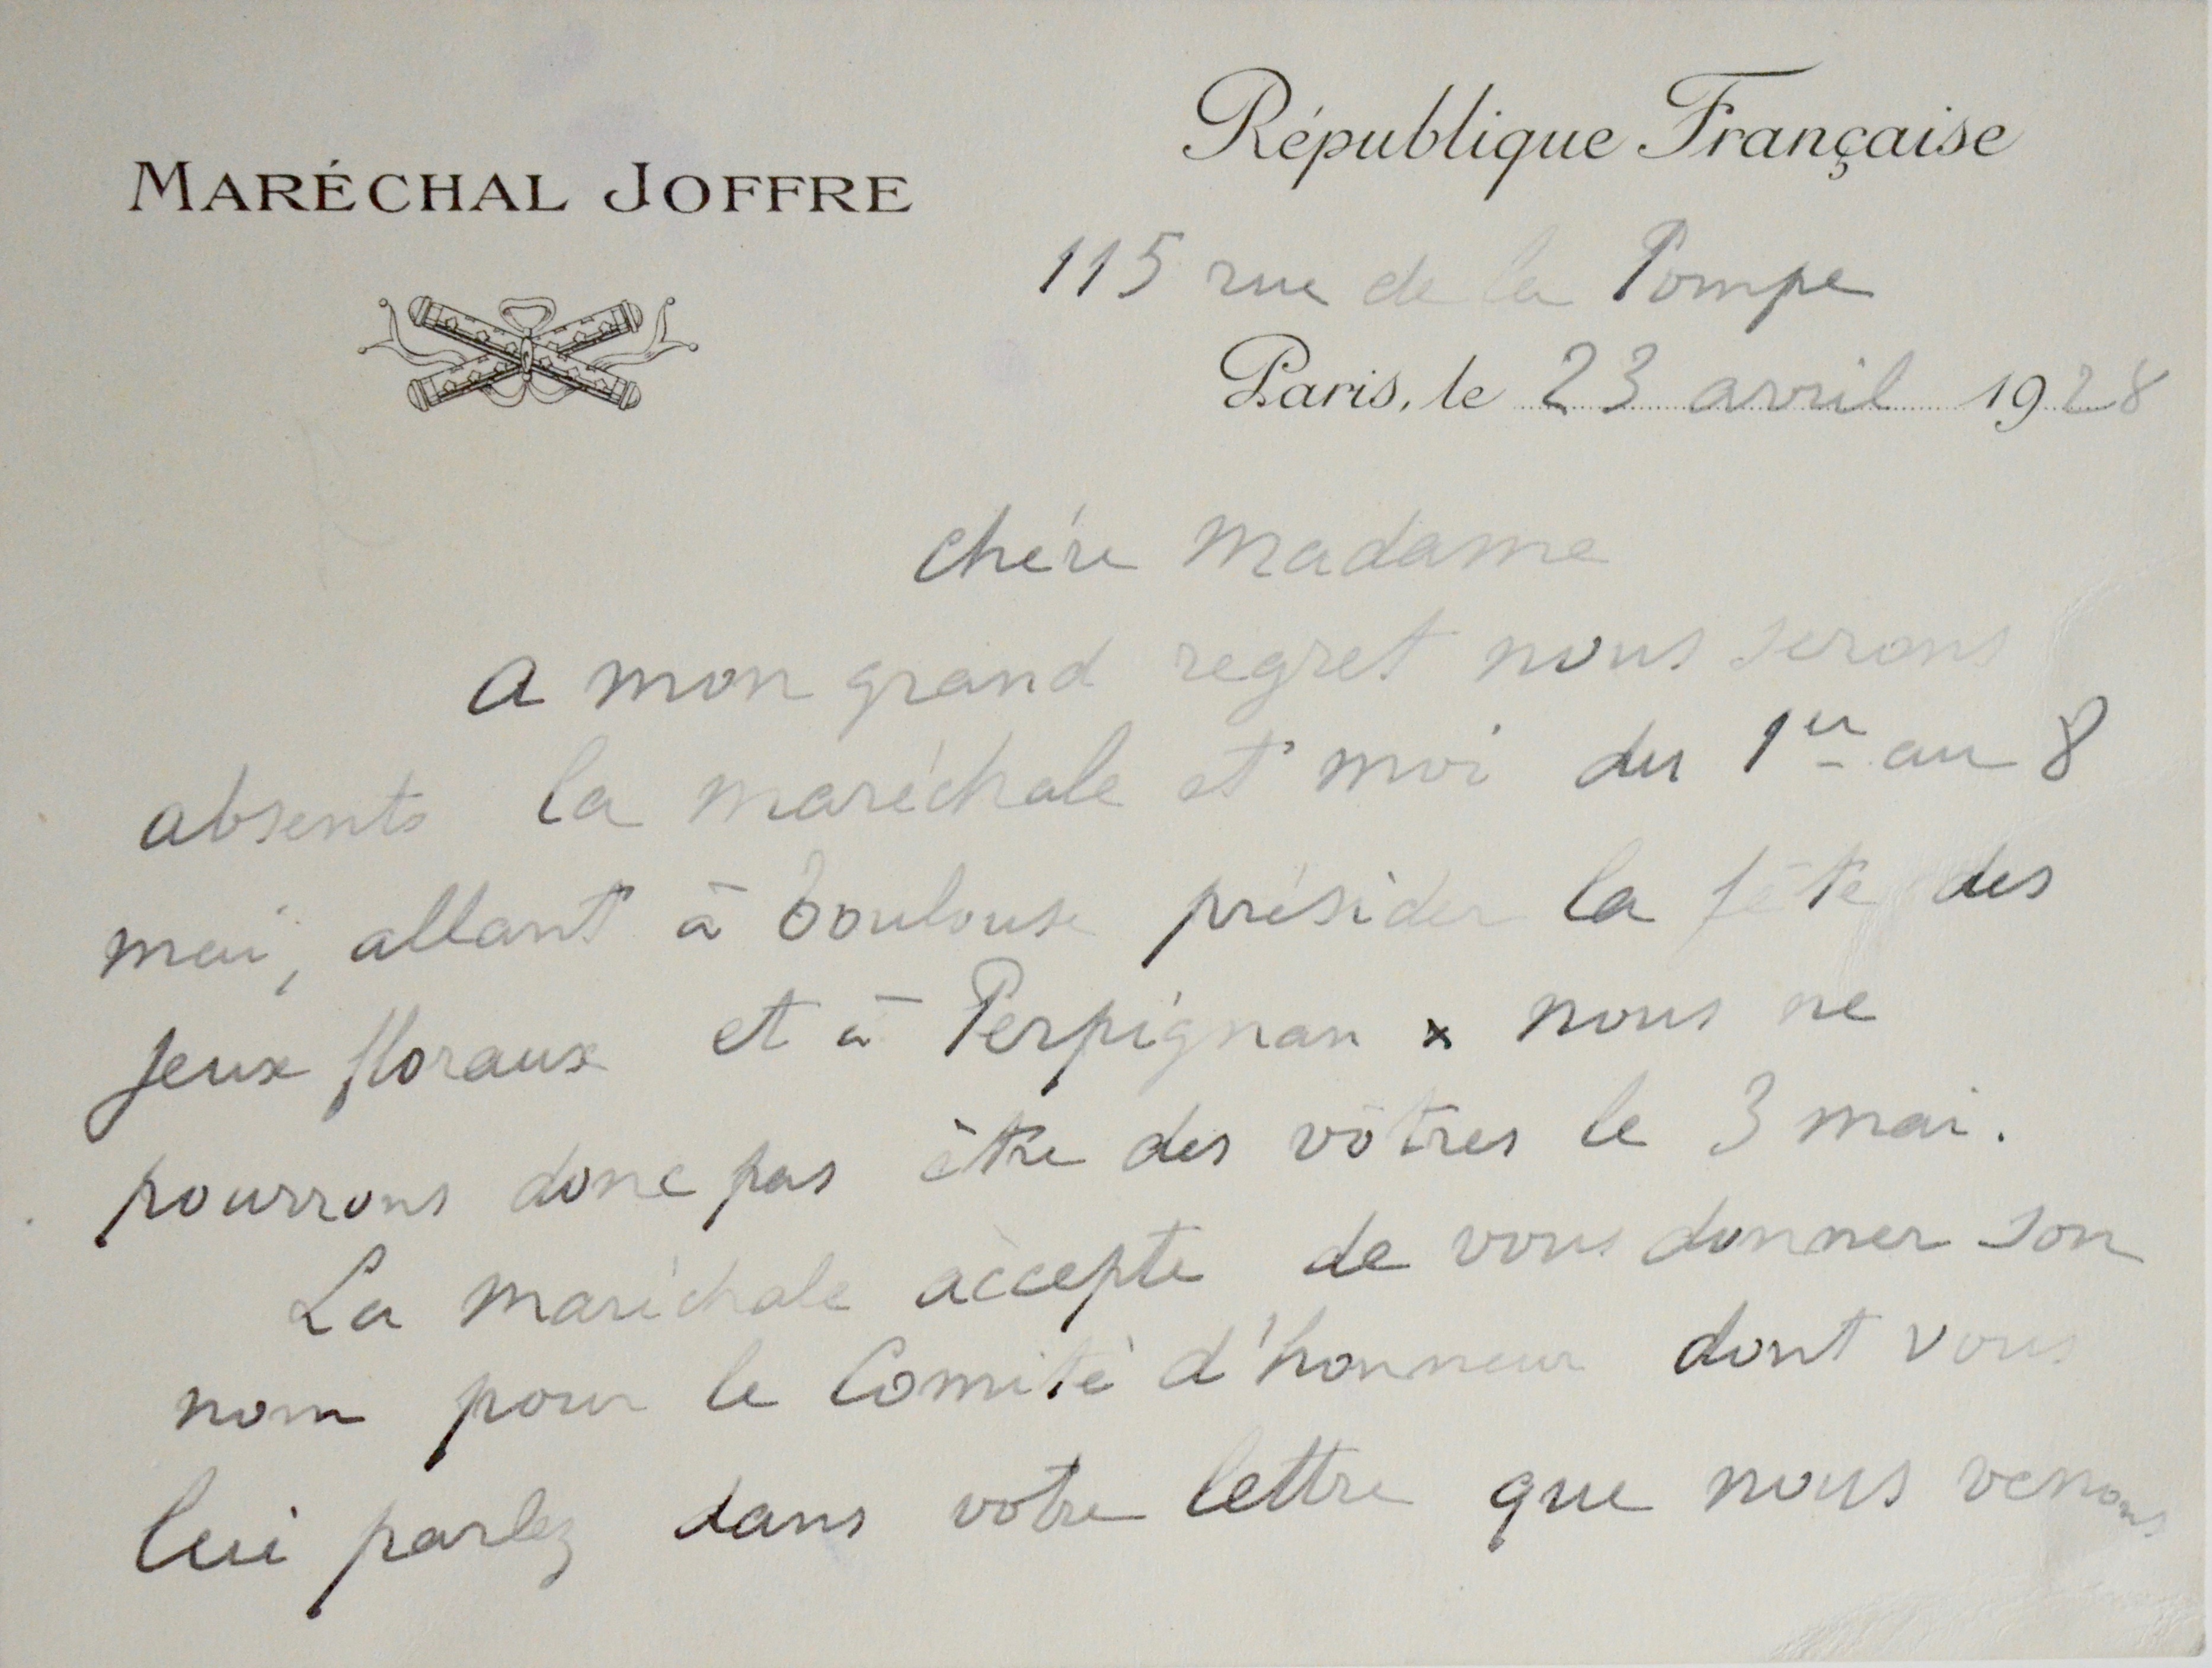 République Française
MARÉCHAL JOFFRE
115 rue de la Pompe
Paris, le 23 avril 1928
Chére Madame
a mon grand regret nous serons
absents la maréchale et moi du 1er au 8
mai, allant à Toulouse présider la fête des
Jeux floraux et à Perpignan x nous ne
pourrons donc pas être des vôtres le 3 mai.
La maréchale accepte de vous donner son
nom pour le Comité d'honneur dont vous
lui parlez dans votre lettre que nous venons